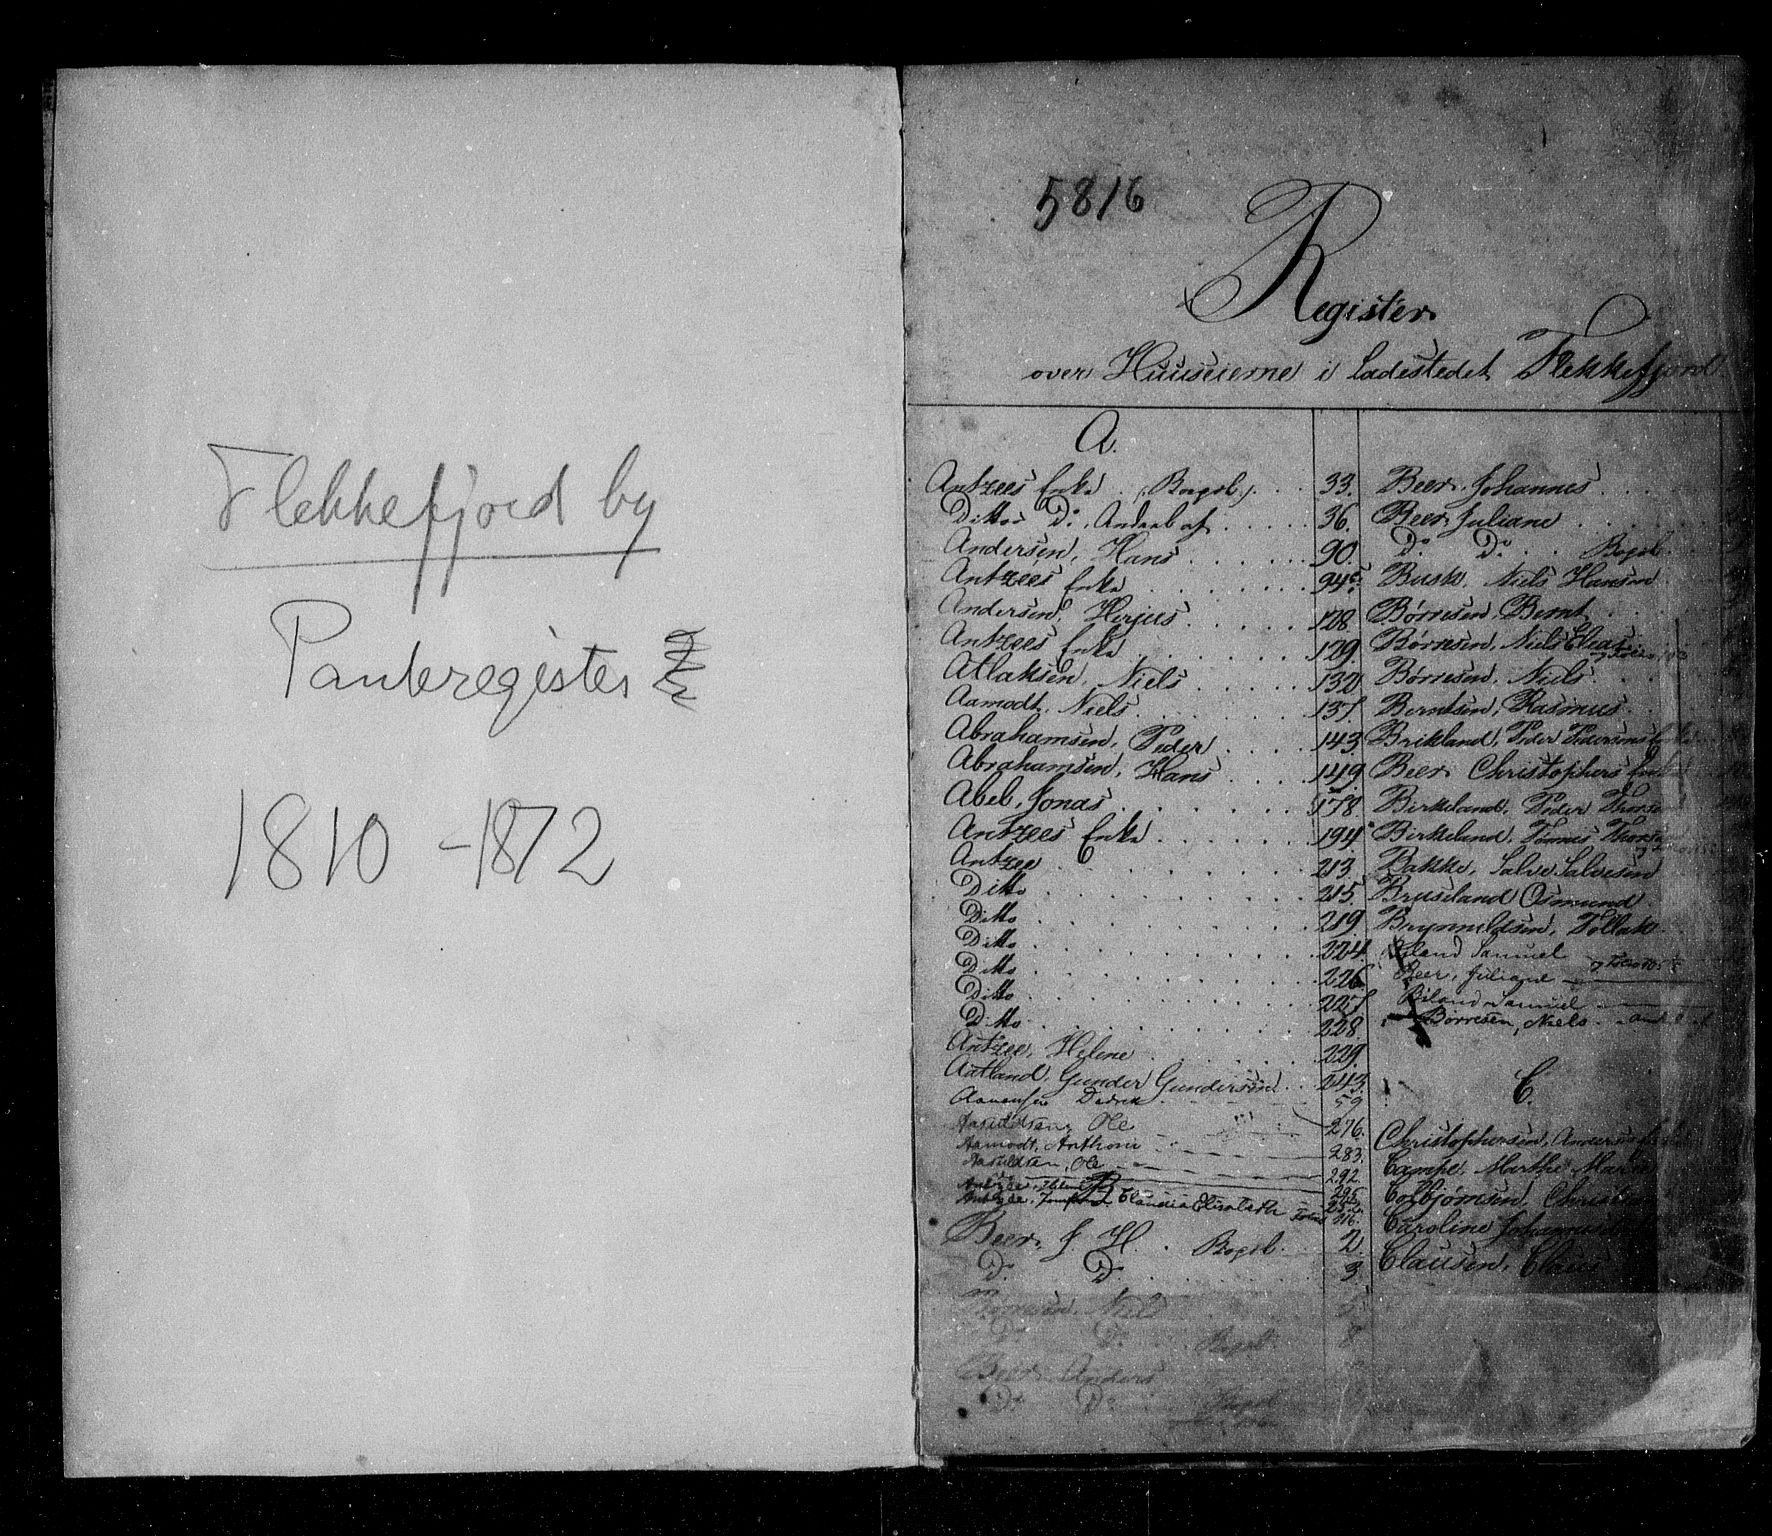 Flekkefjord by
Panteregister
1810 - 1872
5816
Register
over Huuseierne i Ladestedet Flekkefjord
A.
Antzees Enke (Bogsb.) 33.
Ditto D.o Andeel af 36.
Andersen, Hans 90.
Antzees Enke 94
Andersen, Herjus 128
Antzees Enke 129.
Atlaksen, Niels 132
Aamodt, Niels 137.
Abrahamsen, Peder 143
Abrahamsen, Hans 149
Abel, Jonas 178.
Antzees Enke 194
Antzee 213.
Ditto 215.
Ditto 219
Ditto 224
Ditto 226
Ditto 227
Ditto 228.
Antzee, Helene 229.
Aatland, Gunder Gundersen 243.
Aanensen Didrik 59
Ole 276.
Aamodt, Anthoni 283
Ole 292
Antzee, 295
Antzee, Claudia Elisabeth 316.
B
Beer, J H. Bogsb. 2.
D.o D.o 3
Børresen, Niels 5
D.o D.o Bogsb. 8
Beer, Anders
D.o D.o Bogsb
Beer, Johannes
Beer, Juliane
D.o D.o Bogsb.
Busk, Niels Hansen
Børresen, Bernt
Børresen, Niels Elias
Børresen, Niels
Berntsen, Rasmus
Brikland, Peder Pedersens
Beer, Christophers Enke
Birkeland, Peder
Birkeland, Tønnes
Bakke, Salve Salvesen
Bruseland Osmund
Brynnildsen, Tollak
Samuel
Beer, Juliane
Biland Samuel
Børresen, Niels
C.
Christophersen, Anders
Campe, Marthe Marie
Colbjørnsen,
Caroline
Clausen, Claus